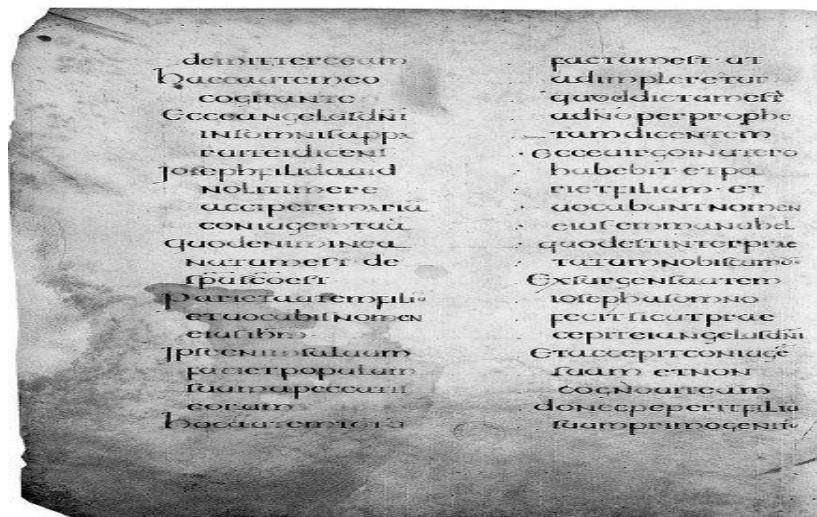 demitterceam
haecautemeo
cogitante
Ecceangelusdn̄i
insomnisappa
ruiteidicens
Josephfilidauid
nolitimere
accipere mariā
coniugemtuā
quodenimineа
natumest·de
sp̄uscōest
Parietautemfiliū
etuocabisnomen
eiusih̄m
Jpseenimsaluum
facietpopulum
suumapeccatis
eorum
hocautemtotū
factumest·ut
adimpleretur
quoddictumest
adn̄operprophe
tamdicentem
Ecceuirgoinutero
habebit·etpa
rietfilium·et
uocabuntnomen
eiusemmanuhel
quodestinterprae
tatumnobiscumd̄s
Exsurgensautem
iosephasomno
fecitsicutprae
cepiteiangelusdn̄i
Etaccepitconiugē
suam·etnon
cognouiteam
donecpeperitfiliū
suumprimogenitū